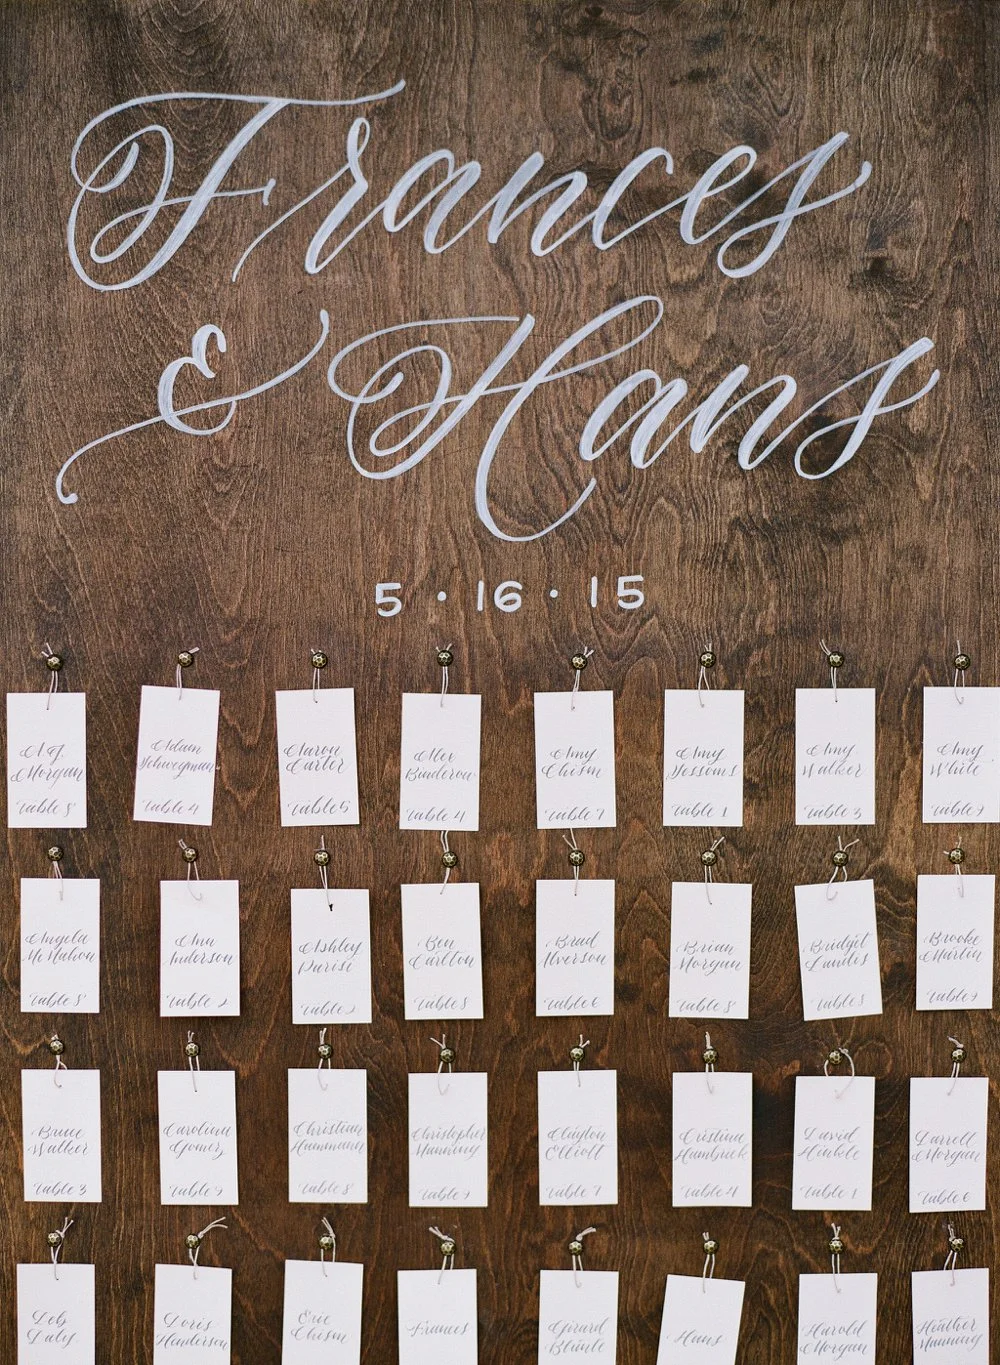 Frances
& Hans
5 · 16 · 15
A.J.
Morgan
Table 8
Adam
Schwegman
Table 4
Aaron
Carter
Table 5
Alex
Table 4
Amy
Chism
Table 7
Amy
Sessoms
Table 1
Amy
Walker
Table 3
Amy
White
Table 9
Angela
McMahon
Table 8
Ana
Anderson
Table 2
Ashley
Parisi
Table
Ben
Carlton
Table 8
Brad
Alverson
Table 6
Brian
Morgan
Table 8
Bridget
Landes
Table 8
Brooke
Martin
Table 9
Bruce
Walker
Table 3
Carolina
Gomez
Table
Christian
Hammann
Table 8
Christopher
Manning
Table 9
Clayton
Elliott
Table 7
Cristina
Hambrick
Table 4
David
Hinkle
Table 1
Darrell
Morgan
Table 6
Deb
Daly
Doris
Henderson
Eric
Chism
Frances
Girard
Hans
Harold
Morgan
Heather
Manning